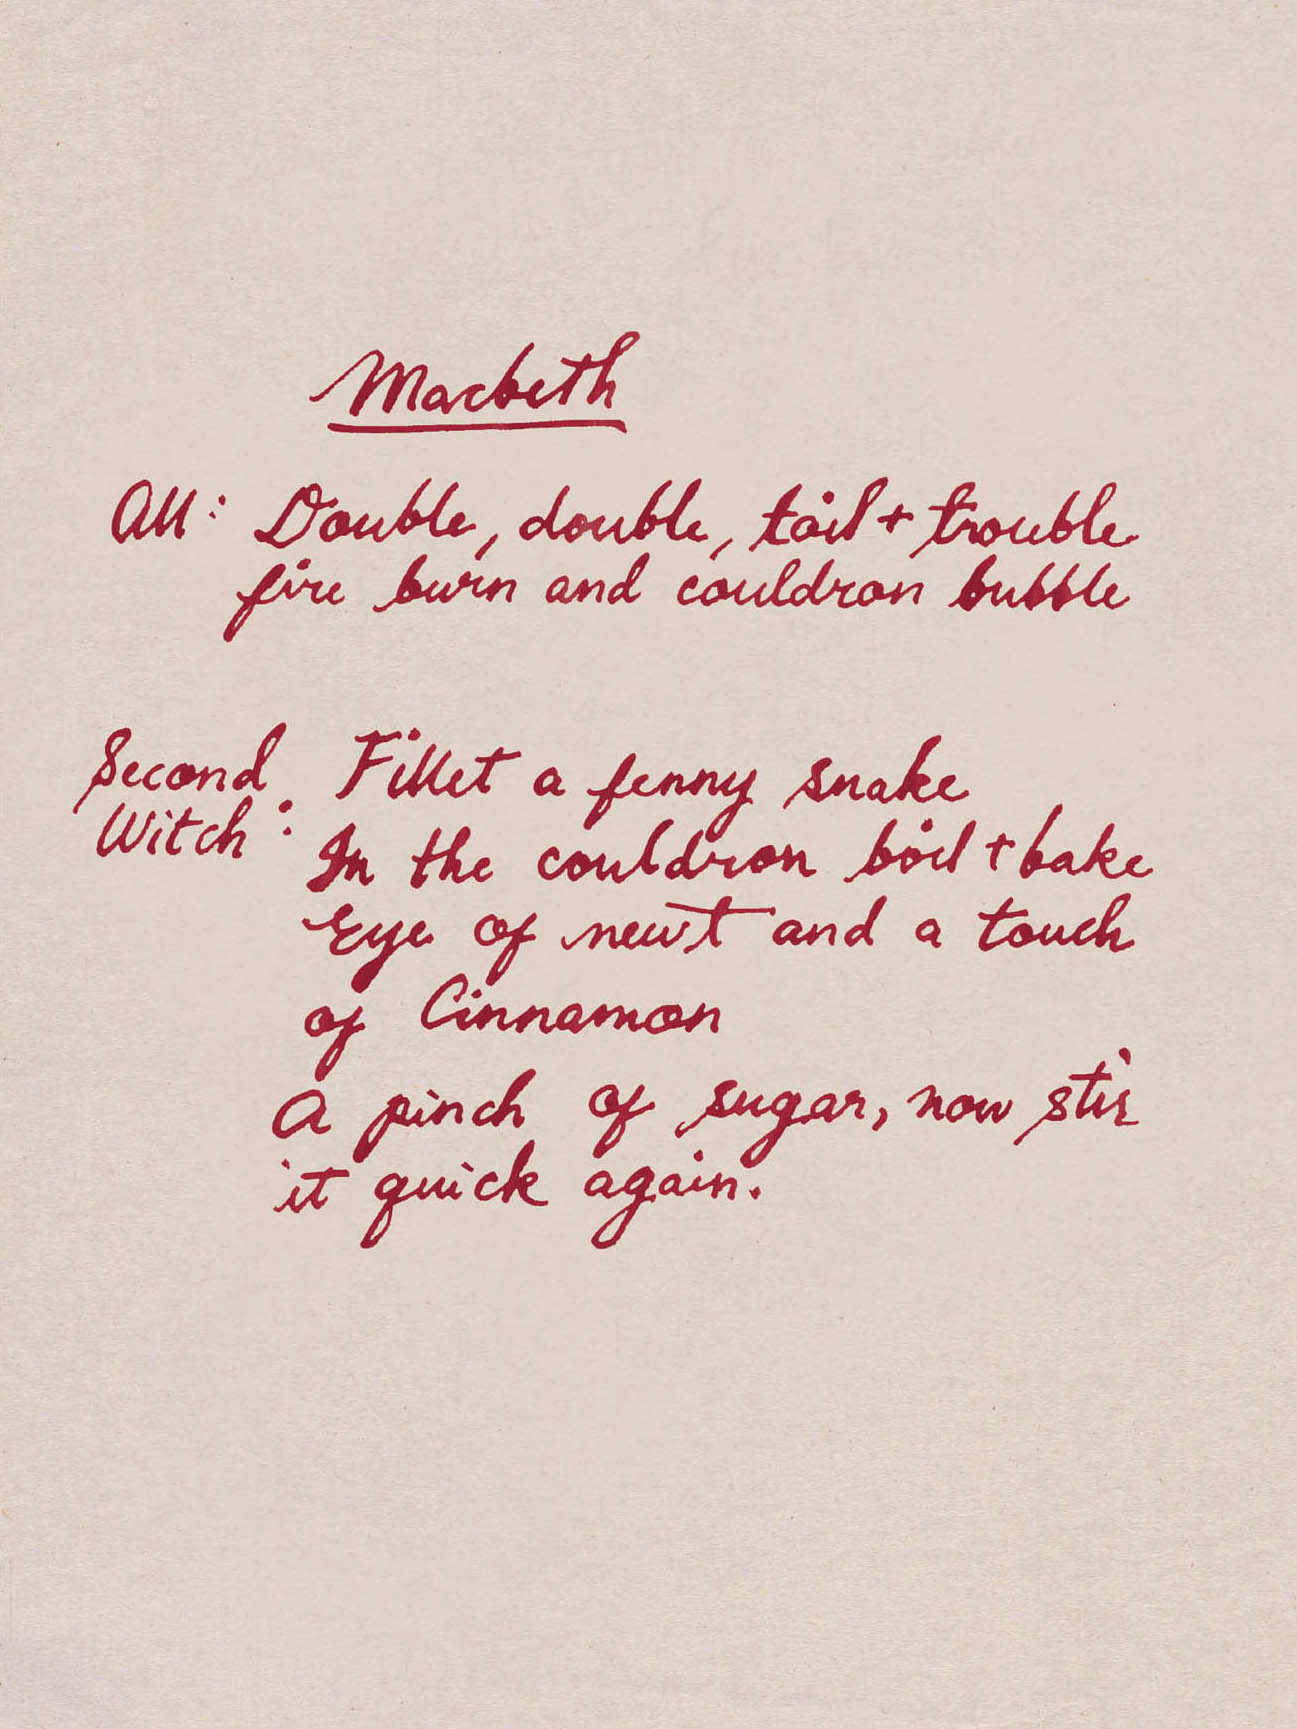 Macbeth
All: Double, double, toil + trouble
fire burn and couldron bubble
Second Witch: Fillet a fenny snake
In the couldron boil + bake
Eye of newt and a touch
of Cinnamon
A pinch of sugar, now stir
it quick again.